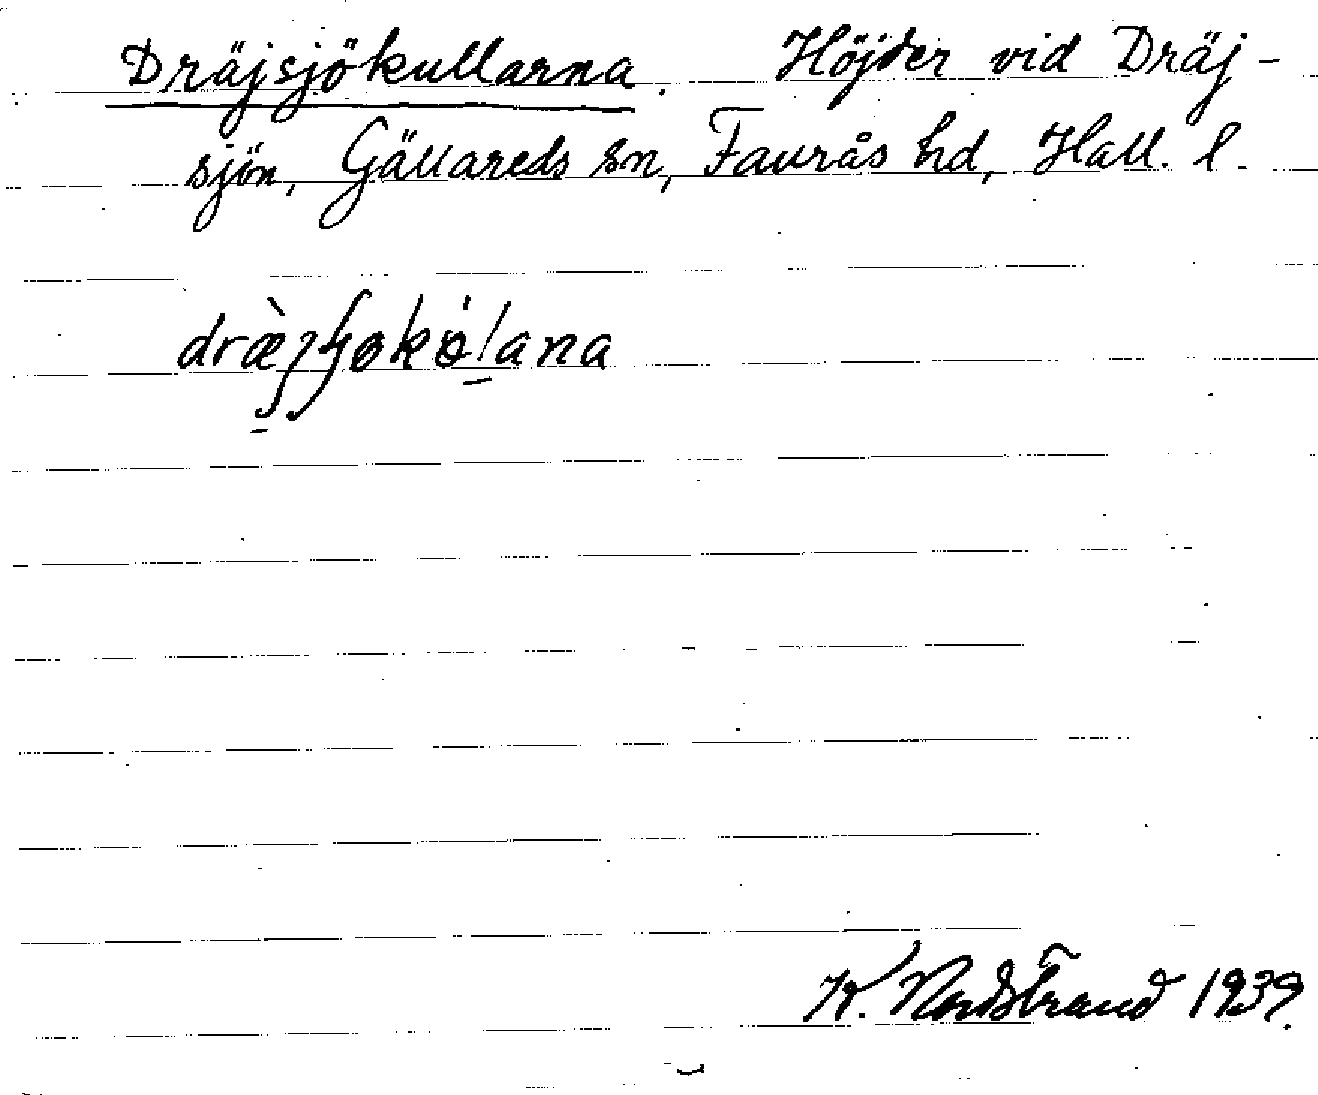 Dräjsjökullarna. Höjder vid Dräj-
sjön, Gällareds sn, Faurås hd, Hall. l.
K. Nordstrand 1939.